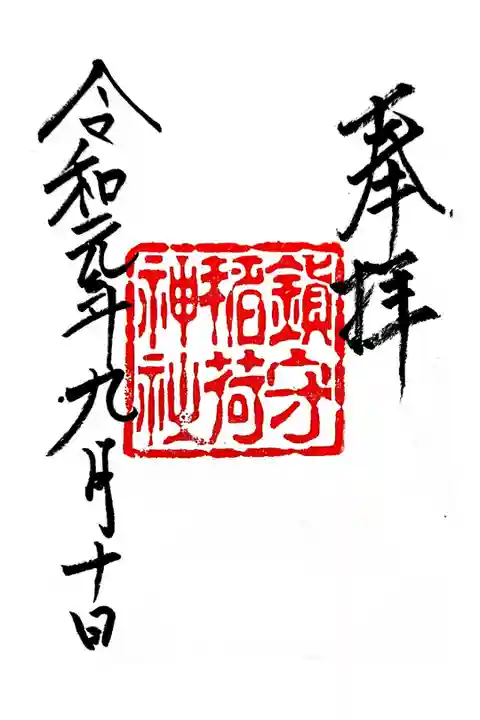 奉拝
鎮守
稲荷
神社
令和元年九月十日